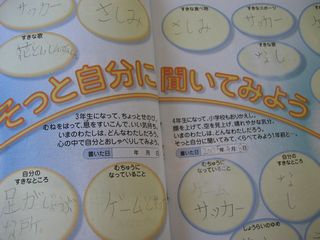 サッカー
さしみ
すきな食べ物
さしみ
すきなスポーツ
サッカー
すきな歌
すきな歌
なし
そっと自分に聞いてみよう
3年生になって、ちょっとせのび。
むねをはって、息をすいこんで、いい気持ち。
いまのわたしは、どんなわたしだろう。
心の中で自分とおしゃべりしてみよう。
書いた日 年 月 日
4年生になって、小学校もおりかえし。
顔を上げて、空を見上げ、晴れやかな気分。
いまのわたしは、どんなわたしだろう。
そっと自分に聞いてみて、くらべてみよう1年前と…。
書いた日 年 月 日
自分の
すきなところ
足が
な所。
むちゅうに
なっていること
ゲーム
むちゅうに
なっていること
サッカー
自分の
すきなところ
なし
しょうらいのゆめ